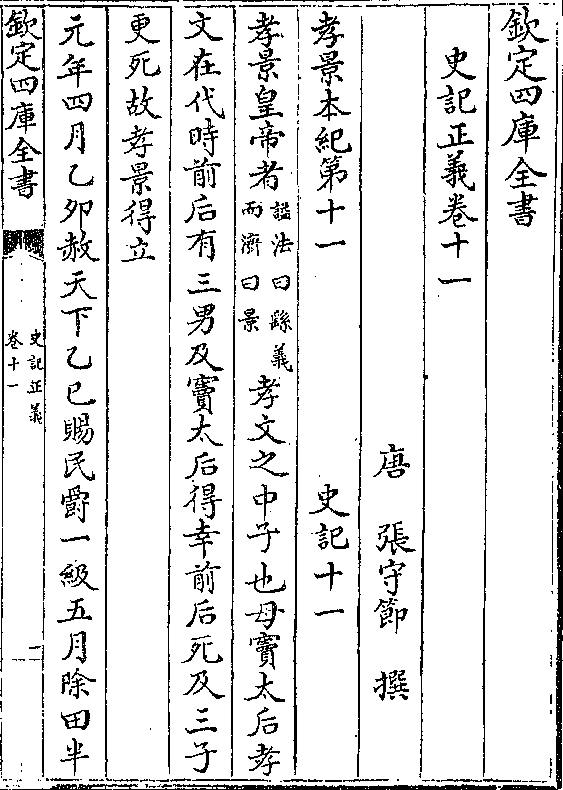 欽定四庫全書
史記正義卷十一
唐　張守節　撰
孝景本紀第十一　史記十一
孝景皇帝者諡法曰繇義而濟曰景孝文之中子也母竇太后孝
文在代時前后有三男及竇太后得幸前后死及三子
更死故孝景得立
元年四月乙卯赦天下乙巳賜民爵一級五月除田半
欽定四庫全書　史記正義卷十一　一